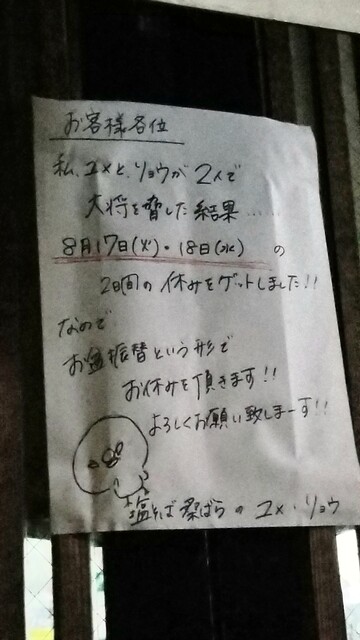 お客様各位
私、ユメと、リョウが2人で
大将を脅した結果……
8月17日(火)・18日(水) の
2日間の休みをゲットしました!!
なので
お盆振替という形で
お休みを頂きます!!
よろしくお願い致しまーす!!
塩そば 桑ばらの ユメ・リョウ